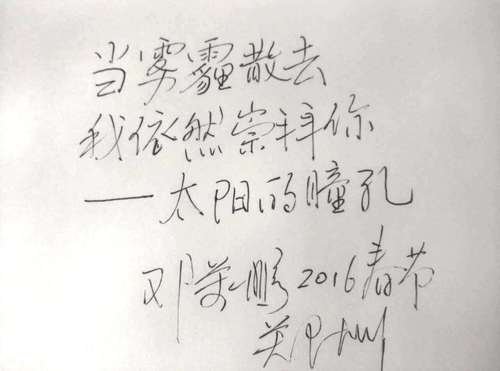 当雾霾散去
我依然崇拜你
——太阳的瞳孔
邓万鹏2016春节
郑州